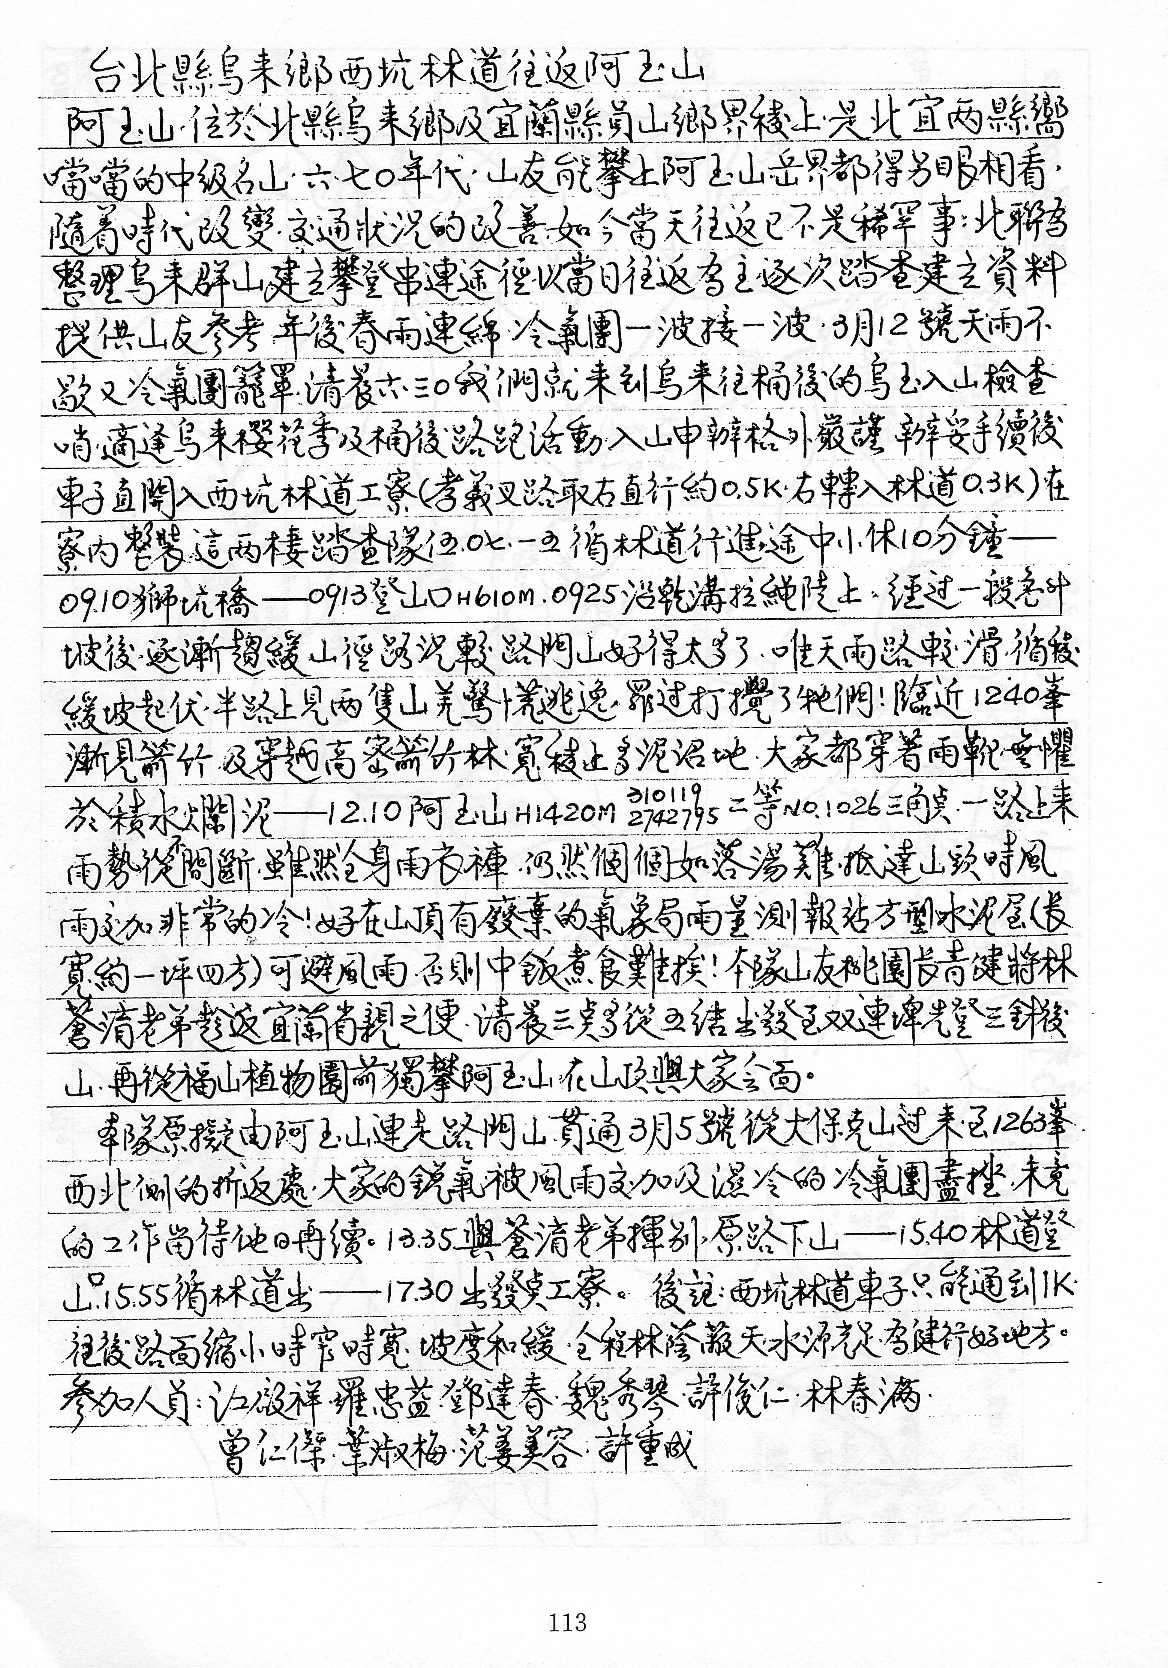 台北縣烏來鄉西坑林道往返阿玉山
阿玉山.位於北縣烏來鄉及宜蘭縣員山鄉界稜上.是北宜两縣嚮
噹噹的中級名山.六.七0年代.山友能攀上阿玉山岳界都得另眼相看.
隨着時代改變.交通狀況的改善.如今當天往返已不是稀罕事:北聯為
整理烏來群山建立攀登串連途徑以當日往返為主逐次踏查建立資料
提供山友參考.年後春雨連綿.冷氣團一波接一波.3月12號天雨不
歇又冷氣團籠罩.清晨六.三0我們就來到烏來往桶後的烏玉入山檢查
哨.適逢烏來櫻花季及桶後路跑活動.入山申辦格外嚴謹.辦妥手續後
車子直開入西坑林道工寮(孝義叉路取右直行約0.5K.右轉入林道0.3K)在
寮内整裝.這两棲踏查隊伍.0七.一五循林道行進途中小休10分鐘——
09.10獅坑橋——0913登山口H610M.0925沿乾溝拉繩陡上.經过一段急斗
坡後.逐漸趨緩山徑路況較路門山好得太多了.唯天雨路較滑.循稜
緩坡起伏.半路上見两隻山羌驚慌逃逸.罪过打攪了牠們!臨近1240峯
漸見箭竹.及穿越高密箭竹林.寬稜上多泥沼地.大家都穿著雨靴.無懼
於積水爛泥——12.10阿玉山H1420M 310119 2742795 二等NO.1026三角点.一路上來
雨勢從不間斷.雖然全身雨衣褲.仍然個個如落湯雞.抵達山頭時風
雨交加非常的冷!好在山頂有廢棄的氣象局雨量測報站方型水泥屋(長
寬約一坪四方)可避風雨.否則中飯煮食難挨!本隊山友桃園長青健將林
蒼淯老弟趁返宜蘭省親之便.清晨三点多從五結出發至双連埤先登三針後
山.再從福山植物園前獨攀阿玉山.在山頂與大家会面。
本隊原擬定由阿玉山連走路門山.貫通3月5號從大保克山过来至1263峯
西北側的折返處.大家的銳氣被風雨交加及濕冷的冷氣團盡挫.未竟
的工作尚待他日再續。13.35與蒼淯老弟揮別.原路下山——15.40林道登
山口.15.55循林道出——17.30出發点工寮。後註:西坑林道車子只能通到1K.
往後路面縮小時窄時寬.坡度和緩.全程林蔭蔽天.水源充足.為健行好地方。
參加人員:江啟祥.羅忠益.鄧達春.魏秀琴.許俊仁.林春滿.
曾仁傑.葉淑梅.范姜美容.許重成
113